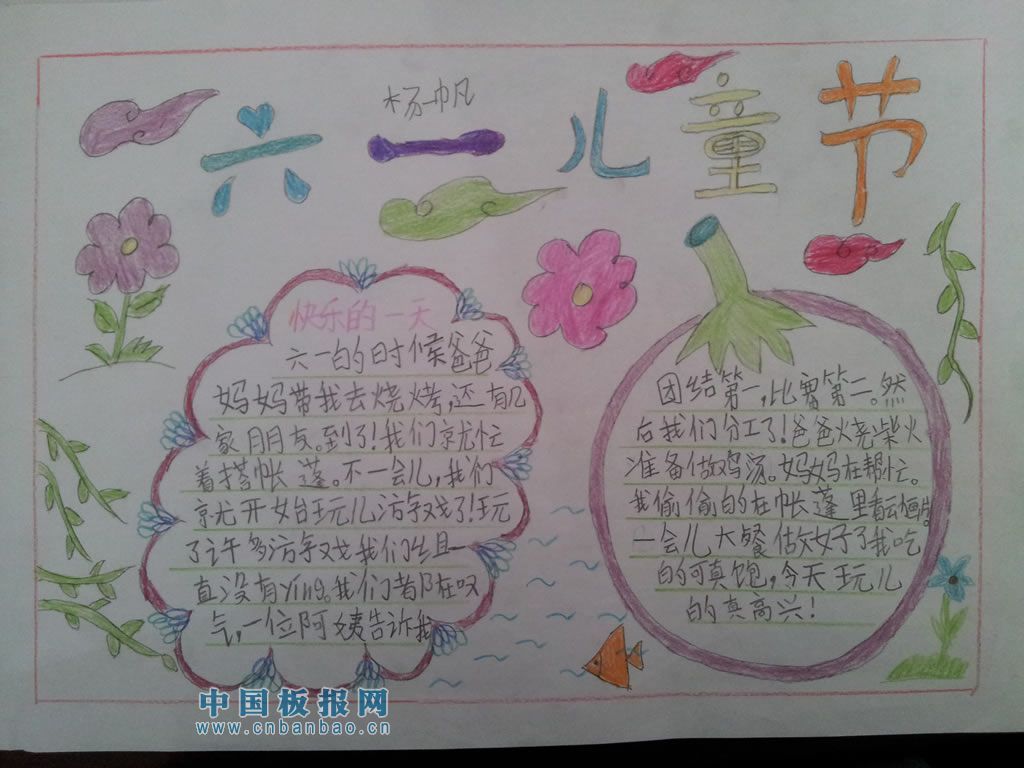 杨帆
六一儿童节
快乐的一天
六一的时候爸爸
妈妈带我去烧烤,还有几
家朋友。到了!我们就忙
着搭帐蓬。不一会儿,我们
就开始玩儿游戏了!玩
了许多游戏我们组一
直没有ying。我们都在叹
气,一位阿姨告诉我
团结第一,比赛第二。然
后我们分工了!爸爸烧柴火
准备做鸡汤。妈妈在帮忙。
我偷偷的在帐蓬里看动画片。
一会儿大餐做好了我吃
的可真饱,今天玩儿
的真高兴!
中国板报网
www.cnbanbao.cn